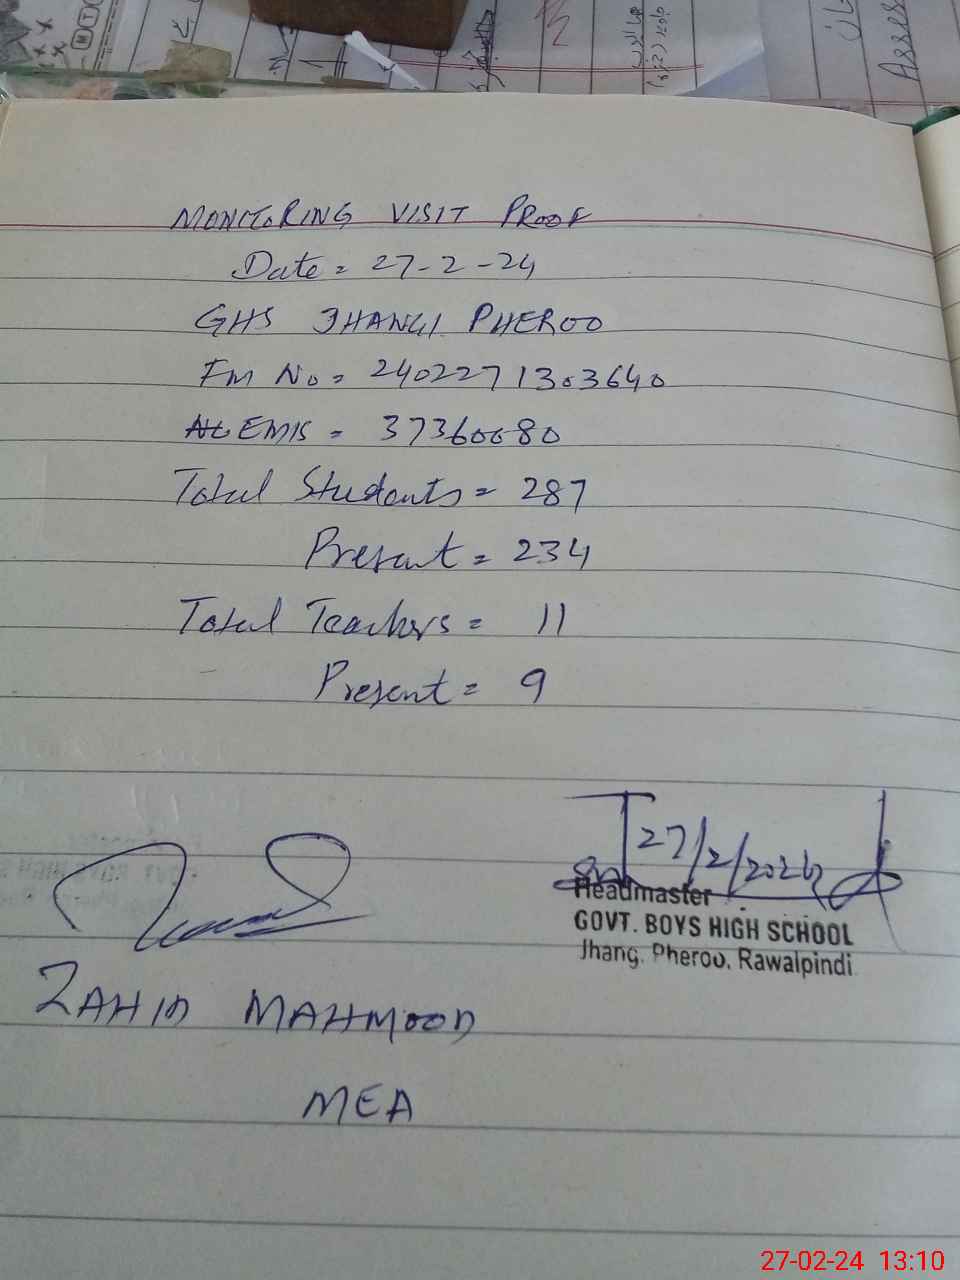 MONITORING VISIT PROOF
Date = 27-2-24
GHS JHANGI PHEROO
Fm No = 2402271303640
EMIS = 37360680
Total Students = 287
Present = 234
Total Teachers = 11
Present = 9
27/2/2024
Headmaster
GOVT. BOYS HIGH SCHOOL
Jhang. Pheroo. Rawalpindi
ZAHID MAHMOOD
MEA
27-02-24 13:10